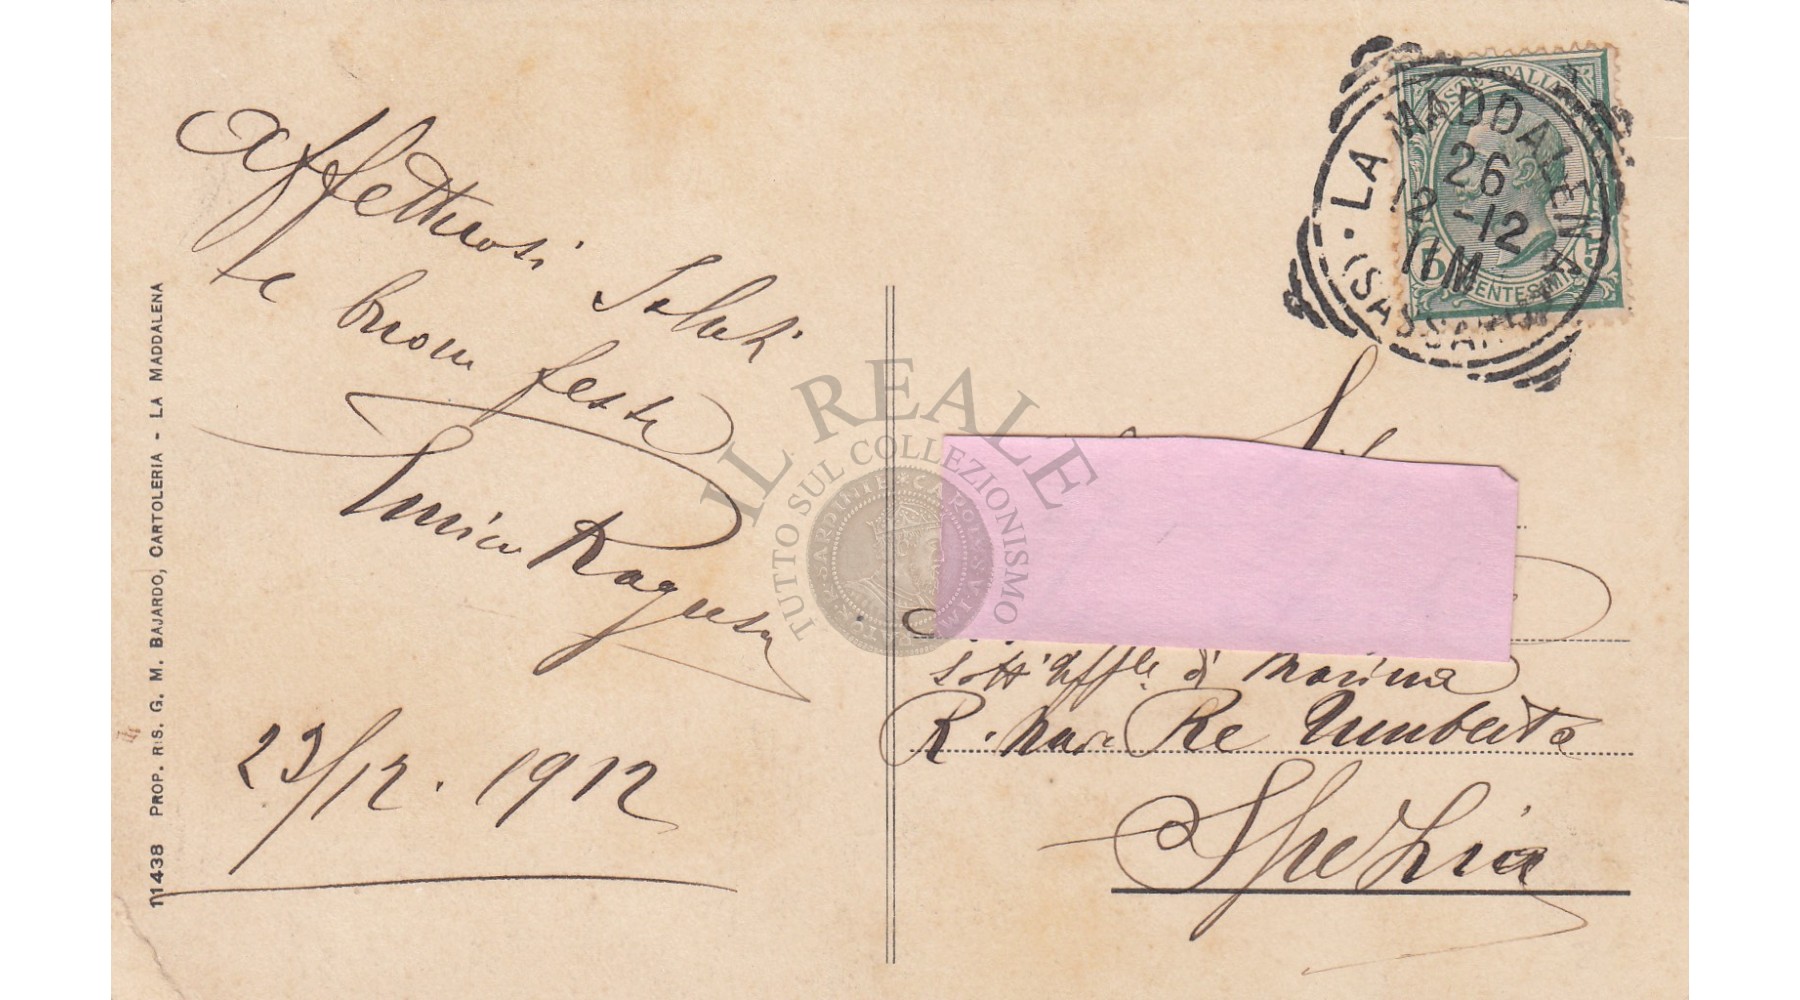 Affettuosi Saluti
e buone feste
Enrico Ragusa
23/12. 1912
11438 PROP. RIS. G. M. BAJARDO, CARTOLERIA - LA MADDALENA
POSTE ITALIANE
CENTESIMI 5
LA MADDALENA
26
12-12
11M
(SASSARI)
IL REALE
TUTTO SUL COLLEZIONISMO
Sott'Uffle di Marina
R. Nave Re Umberto
Spezia